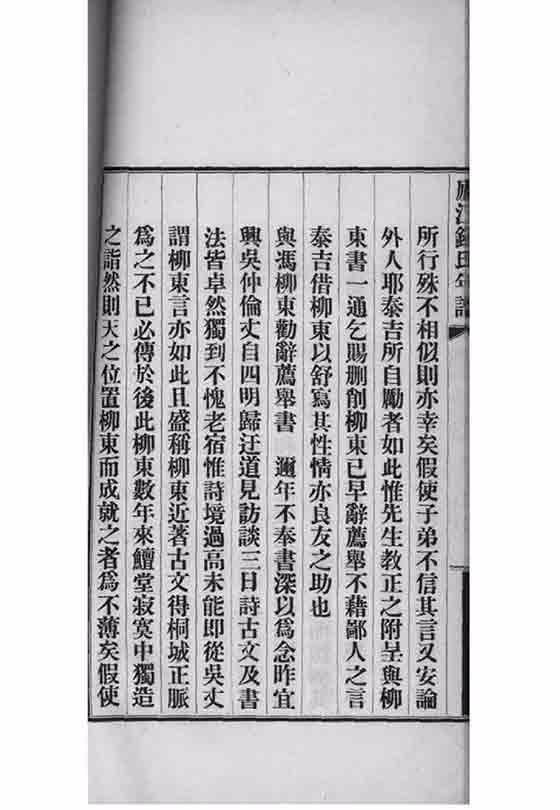 廬江錢氏年譜
所行殊不相似則亦幸矣假使子弟不信其言又安論
外人耶泰吉所自勵者如此惟先生教正之附呈與柳
東書一通乞賜刪削柳東已早辭薦舉不藉鄙人之言
泰吉借柳東以舒寫其性情亦良友之助也
與馮柳東勸辭薦舉書　邇年不奉書深以爲念昨宜
興吳仲倫丈自四明歸迂道見訪談三日詩古文及書
法皆卓然獨到不愧老宿惟詩境過高未能即從吳丈
謂柳東言亦如此且盛稱柳東近著古文得桐城正脈
爲之不已必傳於後此柳東數年來鱣堂寂寞中獨造
之詣然則天之位置柳東而成就之者爲不薄矣假使